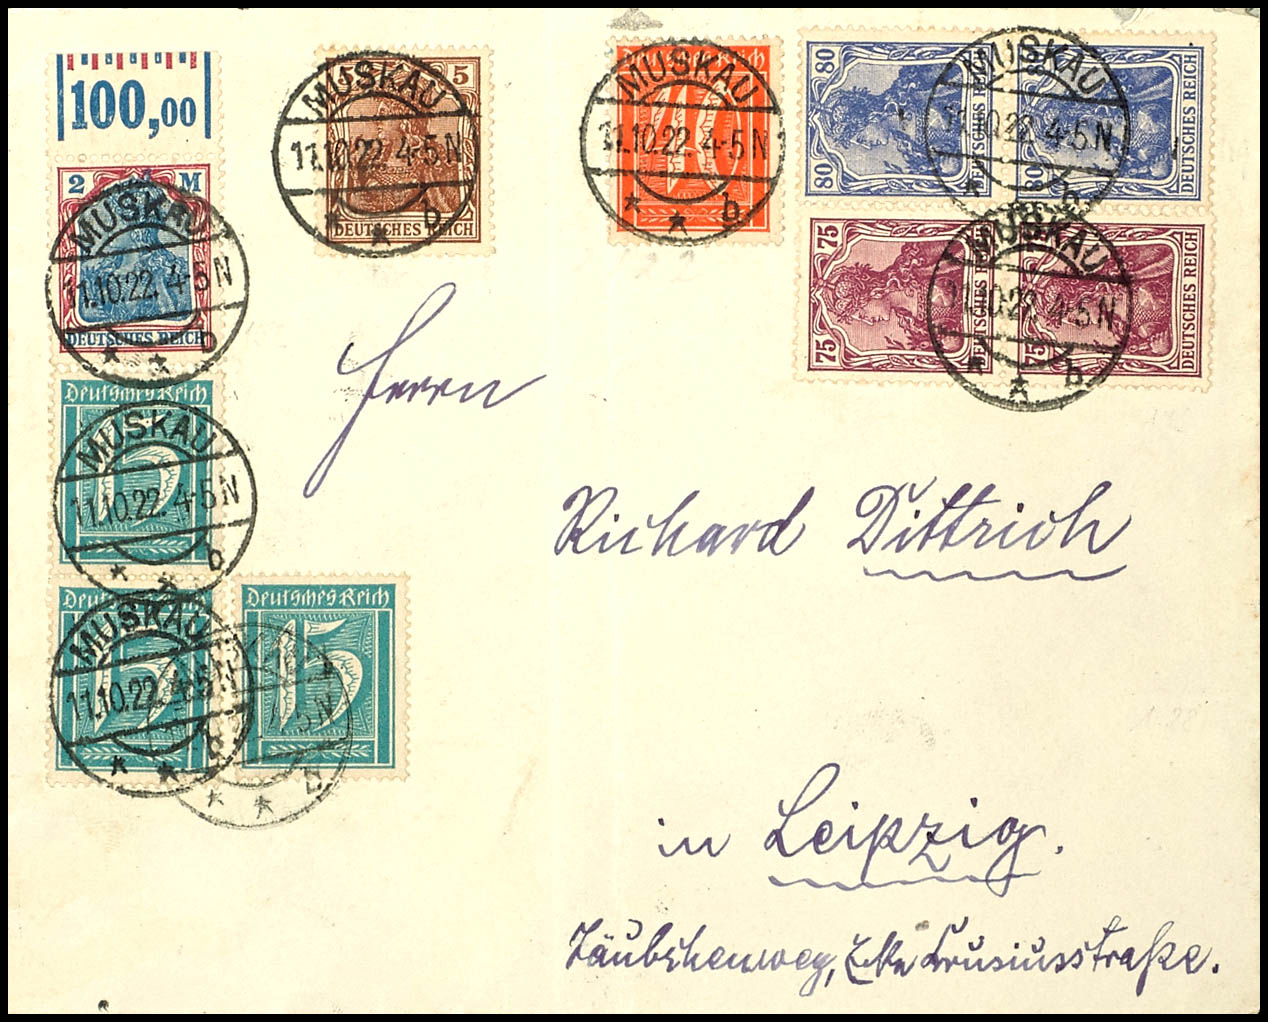 100,00
2 M
DEUTSCHES REICH
MUSKAU
11.10.22. 4-5 N
* * b
5
DEUTSCHES REICH
MUSKAU
11.10.22. 4-5 N
* * b
Deutsches Reich
40
MUSKAU
11.10.22. 4-5 N
* * b
80
80
80
DEUTSCHES REICH
DEUTSCHES REICH
MUSKAU
11.10.22. 4-5 N
75
75
75
DEUTSCHES REICH
DEUTSCHES REICH
MUSKAU
11.10.22. 4-5 N
* * b
Deutsches Reich
15
MUSKAU
11.10.22. 4-5 N
* * b
Deutsches Reich
15
MUSKAU
11.10.22. 4-5 N
* * b
Deutsches Reich
15
5 N
* * b
Herrn
Richard Dittrich
in Leipzig.
Täubchenweg, Ecke Crusiusstraße.